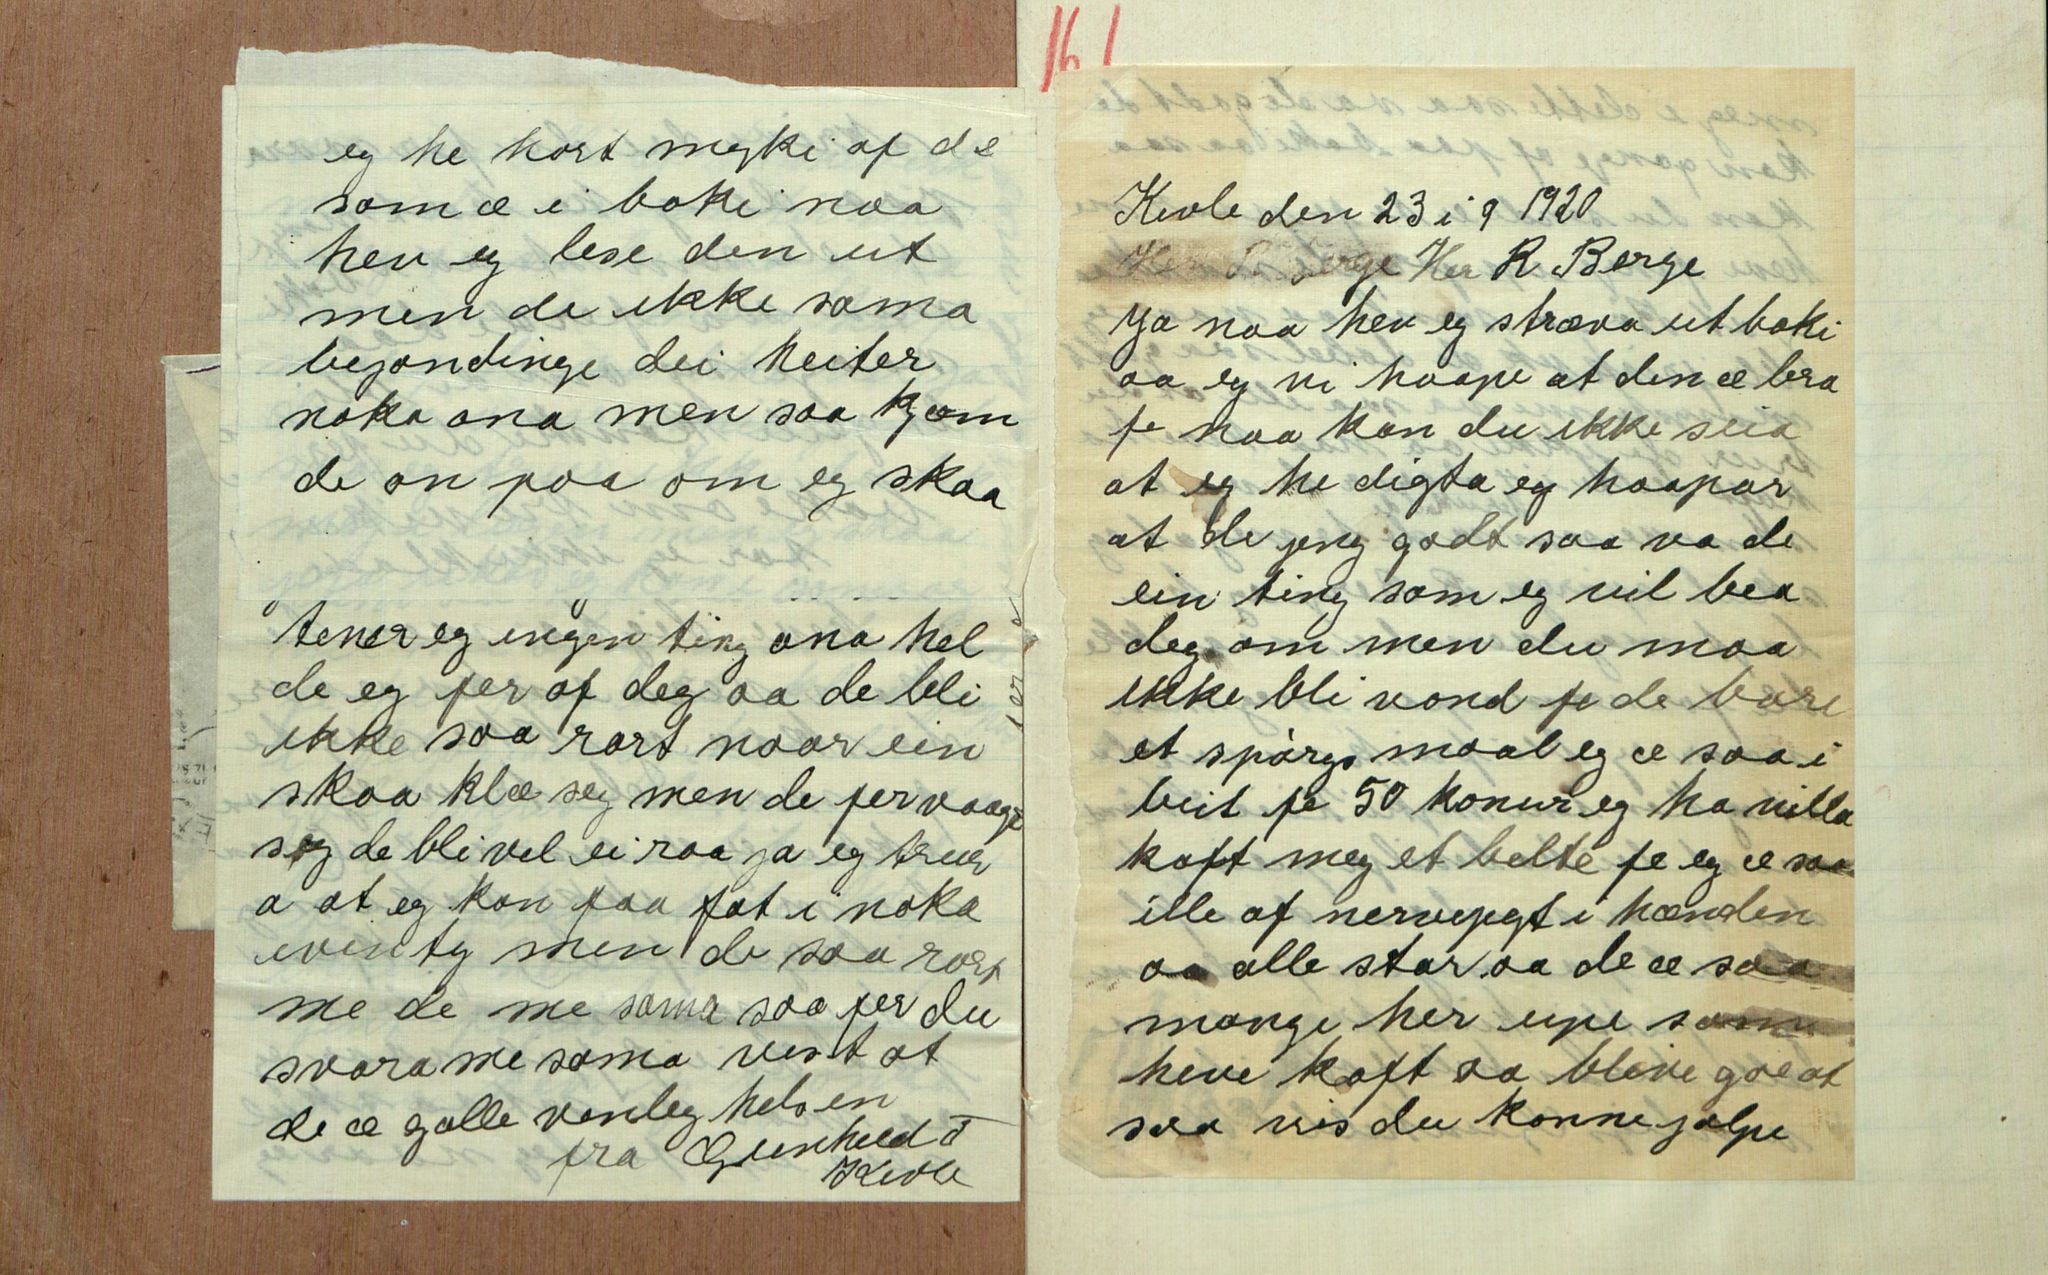 161
eg he hort myki af de
som æ i boki naa
hev eg lese den ut
men de ikke sama
bejondinge dei heiter
noka ana men saa kjem
de an paa om eg skaa
tener eg ingen ting ana hel
de eg fer af deg aa de bli
ikke saa rart naar ein
skaa klæ seg men de fer vaage
seg de bli vel ei raa ja eg truer
a at eg kan faa fat i noka
eventy men de saa rart
me de me sama saa fer du
svara me sama vist at
de æ galle venleg helsen
fra Gunhild å
Kivle
Kivle den 23 i 9 1920
Her R Berge
ja naa hev eg stræva ut boki
aa eg vi haape at den æ bra
fe naa kan du ikke seia
at eg he digta eg haapar
at de jeng godt saa va de
ein ting som eg vil bea
deg om men du maa
ikke bli vond fe de bare
et spårgs maal eg æ saa i
beit fe 50 koner eg ha villa
kaft meg et belte fe eg æ saa
ille af nervejegt i hænden
aa alle star aa de æ saa
mange her upe som
heve kaft aa blive goe at
saa vis du konne jalpe